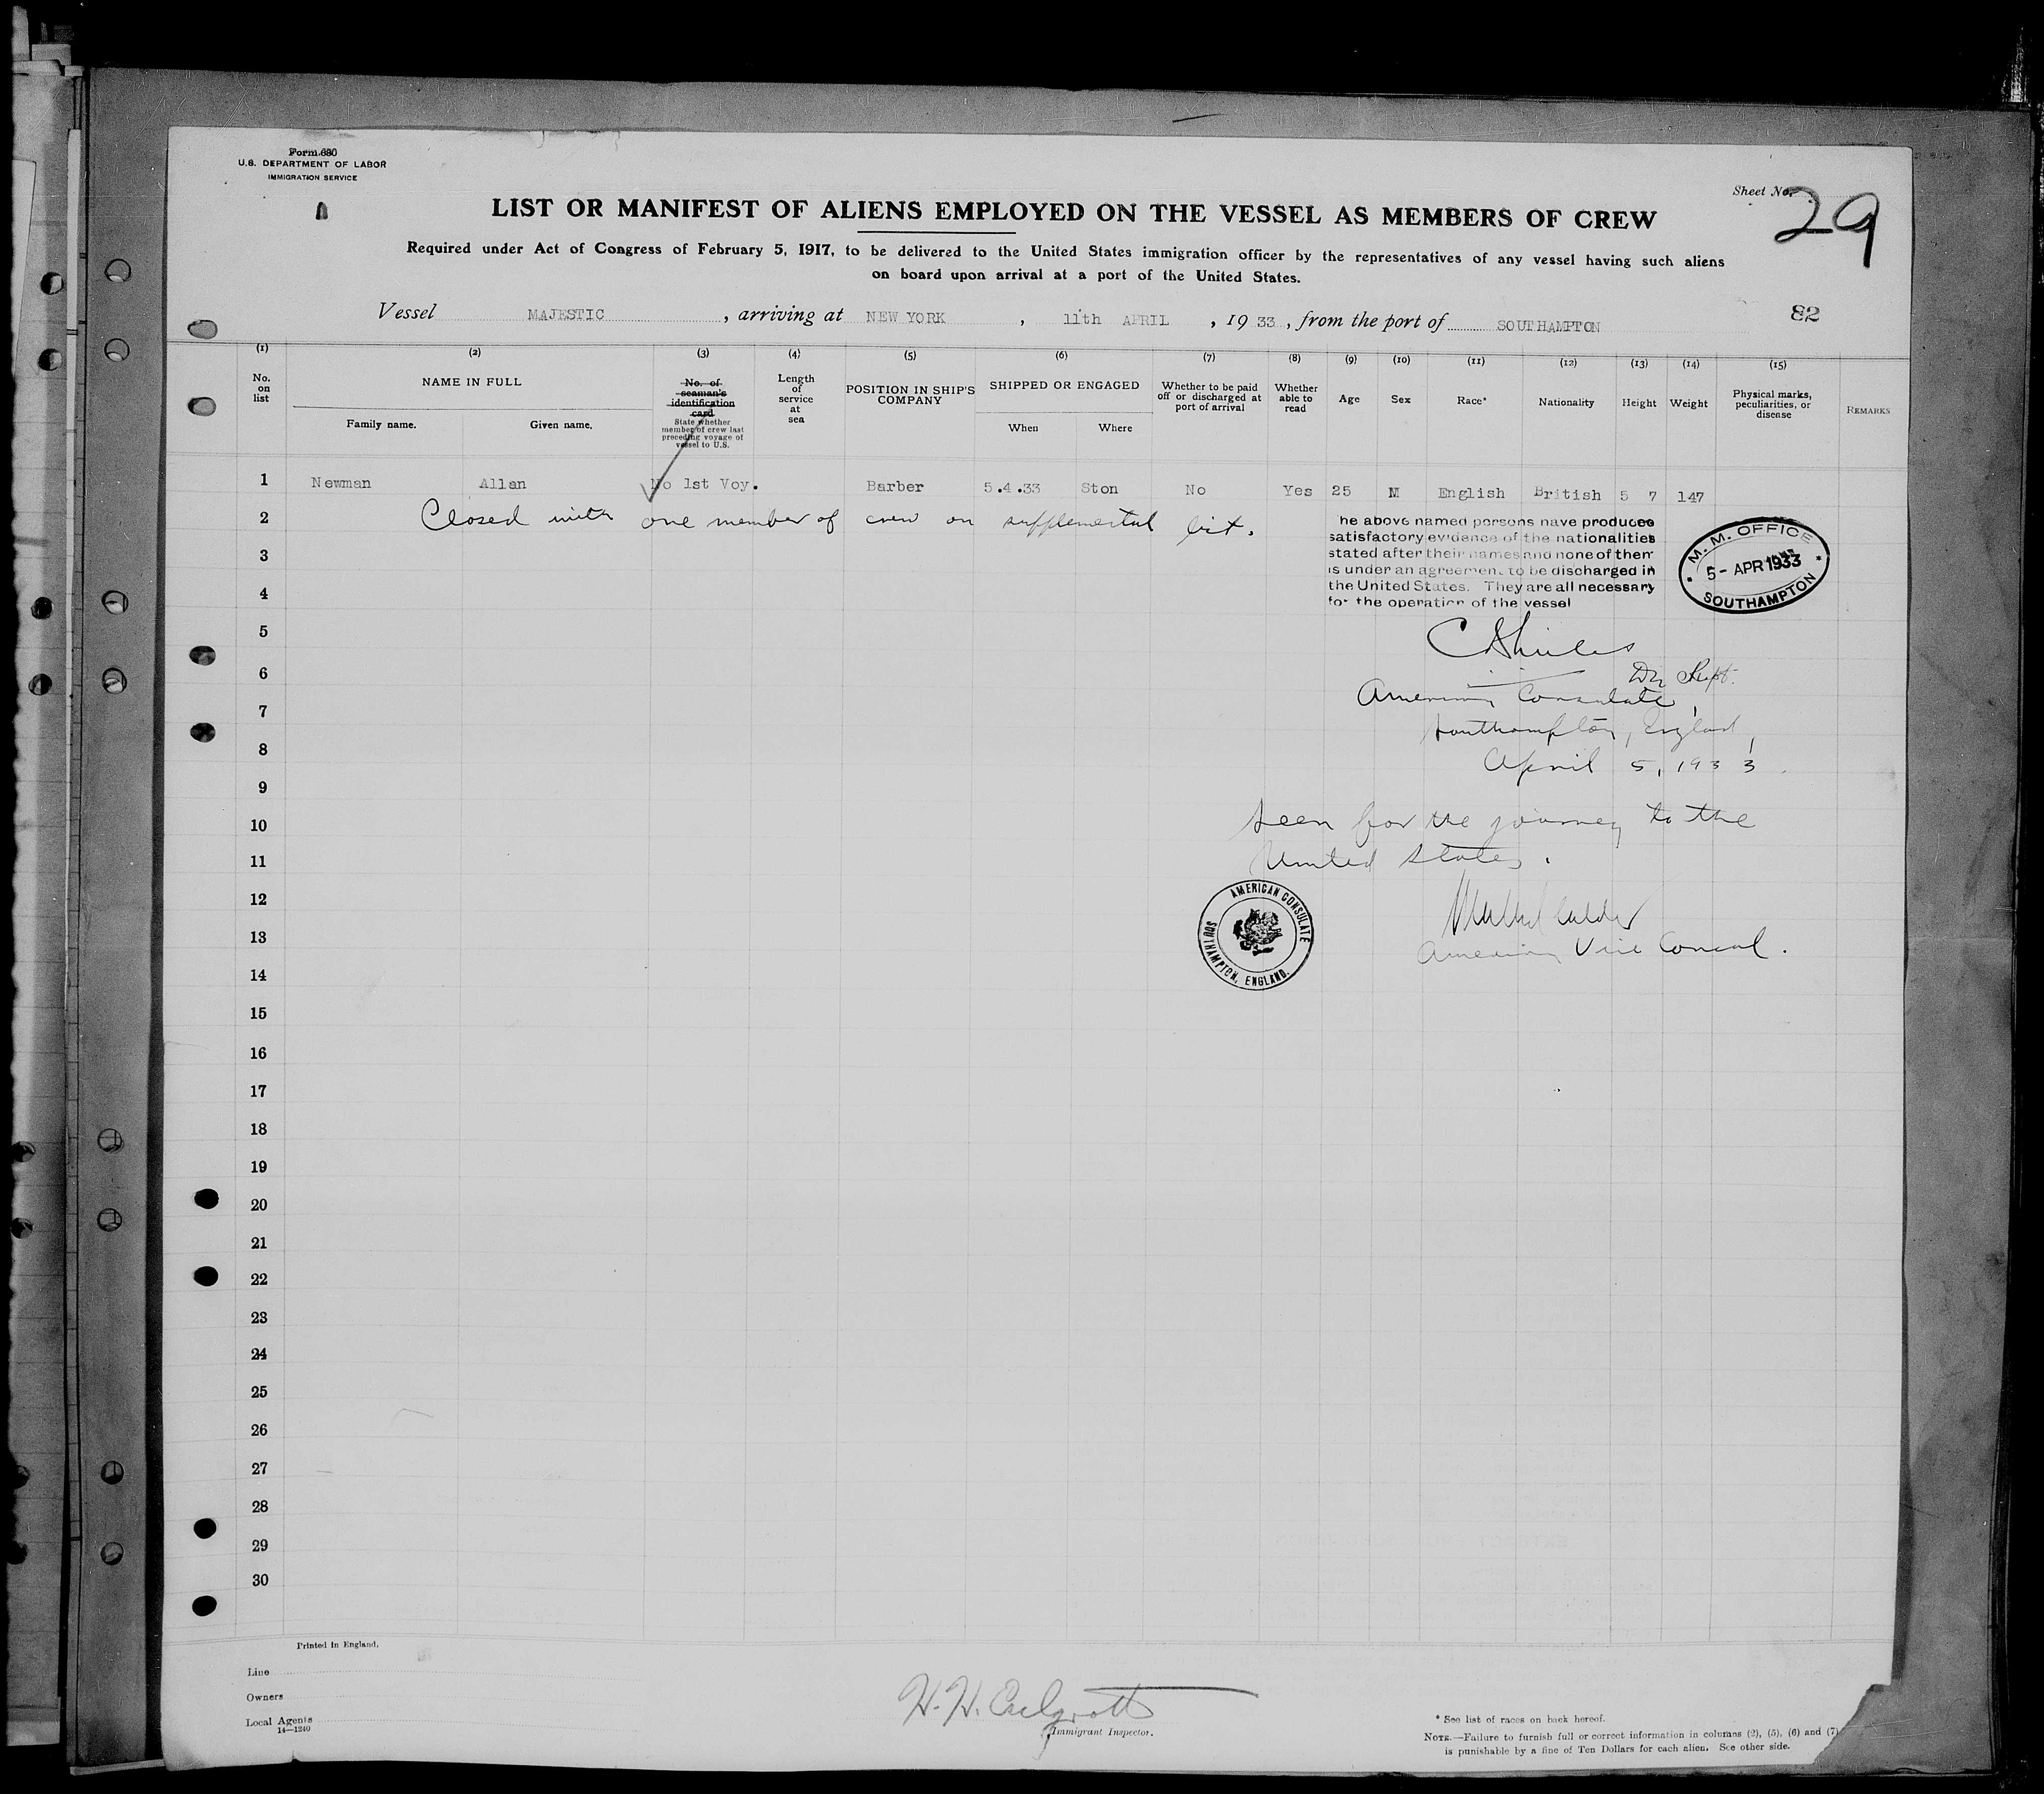 Form 680
U.S. DEPARTMENT OF LABOR
IMMIGRATION SERVICE
Sheet No. 29
LIST OR MANIFEST OF ALIENS EMPLOYED ON THE VESSEL AS MEMBERS OF CREW
Required under Act of Congress of February 5, 1917, to be delivered to the United States immigration officer by the representatives of any vessel having such aliens
on board upon arrival at a port of the United States.
82
Vessel MAJESTIC, arriving at NEW YORK, 11th APRIL, 1933, from the port of SOUTHAMPTON
(1) (2) (3) (4) (5) (6) (7) (8) (9) (10) (11) (12) (13) (14) (15)
No. on list
NAME IN FULL
Family name. Given name.
No. of seaman's identification card
State whether member of crew last preceding voyage of vessel to U.S.
Length of service at sea
POSITION IN SHIP'S COMPANY
SHIPPED OR ENGAGED
When Where
Whether to be paid off or discharged at port of arrival
Whether able to read
Age
Sex
Race*
Nationality
Height
Weight
Physical marks, peculiarities, or disease
REMARKS
1 Newman Allan No 1st Voy. Barber 5.4.33 Ston No Yes 25 M English British 5 7 147
2 Closed with one member of crew on supplemental list.
he above named persons have produced
satisfactory evidence of the nationalities
stated after their names and none of them
is under an agreement to be discharged in
the United States. They are all necessary
for the operation of the vessel
M. M. OFFICE
5- APR 1933
SOUTHAMPTON
3
4
5
6
American Consulate,
7
Southampton, England,
8
April 5, 1933.
9
10
Seen for the journey to the
11
United States.
12
AMERICAN CONSULATE
SOUTHAMPTON, ENGLAND.
13
American Vice Consul.
14
15
16
17
18
19
20
21
22
23
24
25
26
27
28
29
30
Printed in England.
Line
Owners
Local Agents
14—1240
H. H.
Immigrant Inspector.
* See list of races on back hereof.
NOTE.—Failure to furnish full or correct information in columns (2), (5), (6) and (7)
is punishable by a fine of Ten Dollars for each alien. See other side.